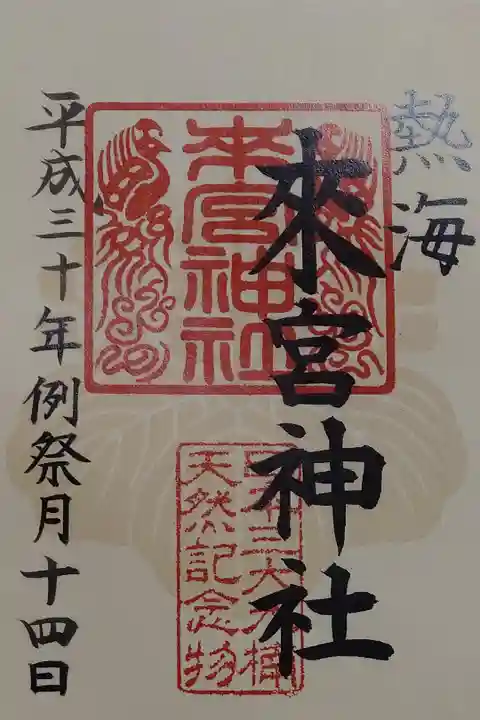 熱海
來宮神社
來宮神社
日本三大
天然記念物
平成三十年例祭月十四日